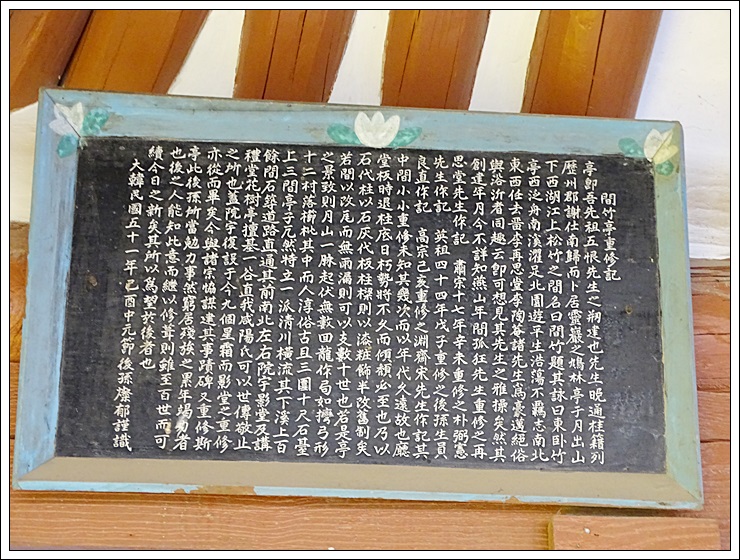 間竹亭重修記
亭卽吾先祖五恨先生之刱建也先生晩通桂籍列
歷州郡謝仕南歸而卜居靈巖之鳩林亭子月出山
下西湖江上松竹之間名曰間竹題其詠曰東臥竹
亭西泛舟南溪濯足北園遊平生浩蕩不羈志南北
東西任去留李再思堂李陶菴諸先生爲豪邁絶俗
與浴沂者同趣云卽可想見其先生之雅操矣然其
創建年月今不詳知燕山年間孤狂先生重修之再
思堂先生作記 肅宗十七年辛未重修之朴弼憲
先生作記 英祖四十四年戊子重修之後孫生員
良直作記 高宗己亥重修之淵齋宋先生作記其
中間小小重修未知其幾次而以年代久遠故也廳
堂板時退柱底日朽勢將不久而傾頹必至也乃以
石代柱以石灰代板柱樑則以漆粧飾半改舊制矣
若間以改瓦而無雨漏則可以支數十世也若是亭
之景致則月山一脉起伏無數回龍作局如彎弓形
十二村落櫛枇其中而人淳俗古且三圍十尺石基
上三間亭子兀然特立一派清川橫流其下溪上一百
餘間石築道路直通其前南北左右院宇影堂及講
禮堂花樹亭擅墓一谷直我咸陽氏可以世傳敬止
之所也盖院宇復設于今九個星霜而影堂之重修
亦從而畢矣今與諸宗協謀建其事蹟碑又重修斯
亭此後孫所當勉力事然窮居殘族之累年竭力者
也後之人能知此意而繼以修葺則雖至百世而可
續今日之新矣其所以爲望於後者也
大韓民國五十一年己酉中元節後孫燦郁謹識